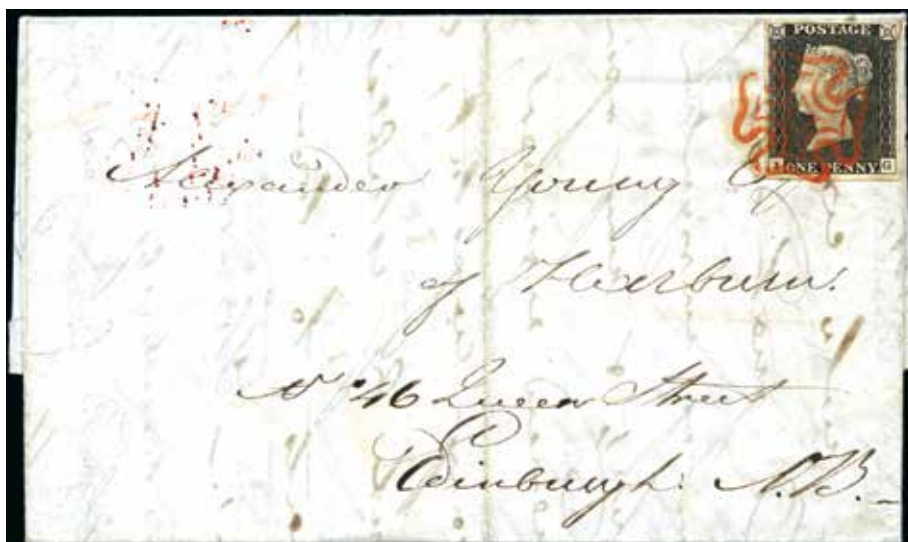 POSTAGE
ONE PENNY G
Alexander Young Esq
of Harburn.
No 46 Queen Street
Edinburgh. N.B.